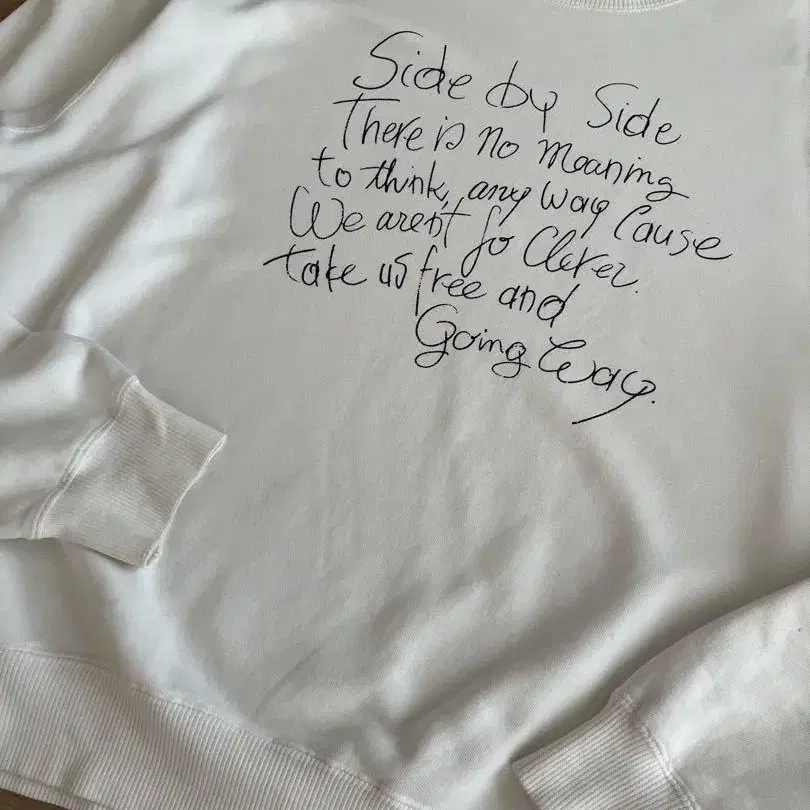 Side by Side
There is no meaning
to think, any way Cause
We aren't so Clever.
take us free and
Going Way.